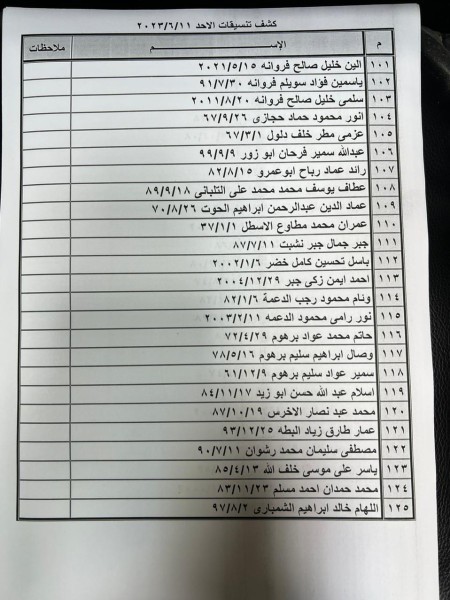 كشف تنسيقات الاحد ٢٠٢٣/٦/١١
م الإســــم ملاحظات
١٠١ الين خليل صالح فروانه ٢٠٢١/٥/١٥
١٠٢ ياسمين فؤاد سويلم فروانه ٩١/٧/٣٠
١٠٣ سلمى خليل صالح فروانه ٢٠١١/٨/٢٠
١٠٤ انور محمود حماد حجازى ٦٧/٩/٢٦
١٠٥ عزمى مطر خلف دلول ٦٧/٣/١
١٠٦ عبدالله سمير فرحان ابو زور ٩٩/٩/٩
١٠٧ رائد عماد رباح ابوعمرو ٨٢/٨/١٥
١٠٨ عطاف يوسف محمد محمد على التلبانى ٨٩/٩/١٨
١٠٩ عماد الدين عبدالرحمن ابراهيم الحوت ٧٠/٨/٢٦
١١٠ عمران محمد مطاوع الاسطل ٣٧/١/١
١١١ جبر جمال جبر نشبت ٨٧/٧/١١
١١٢ باسل تحسين كامل خضر ٢٠٠٢/١/٦
١١٣ احمد ايمن زكى جبر ٢٠٠٤/١٢/٢٩
١١٤ ونام محمود رجب الدعمة ٨٢/١/٦
١١٥ نور رامى محمود الدعمه ٢٠٠٣/٢/١١
١١٦ حاتم محمد عواد برهوم ٧٢/٤/٢٩
١١٧ وصال ابراهيم سليم برهوم ٧٨/٥/١٦
١١٨ سمير عواد سليم برهوم ٦١/١٢/٩
١١٩ اسلام عبد الله حسن ابو زيد ٨٤/١١/١٧
١٢٠ محمد عبد نصار الاخرس ٨٧/١٠/١٩
١٢١ عمار طارق زياد البطه ٩٣/١٢/٢٥
١٢٢ مصطفى سليمان محمد رشوان ٩٠/٧/١١
١٢٣ ياسر على موسى خلف الله ٨٥/٤/١٣
١٢٤ محمد حمدان احمد مسلم ٨٣/١١/٢٣
١٢٥ اللهام خالد ابراهيم الشمبارى ٩٧/٨/٢